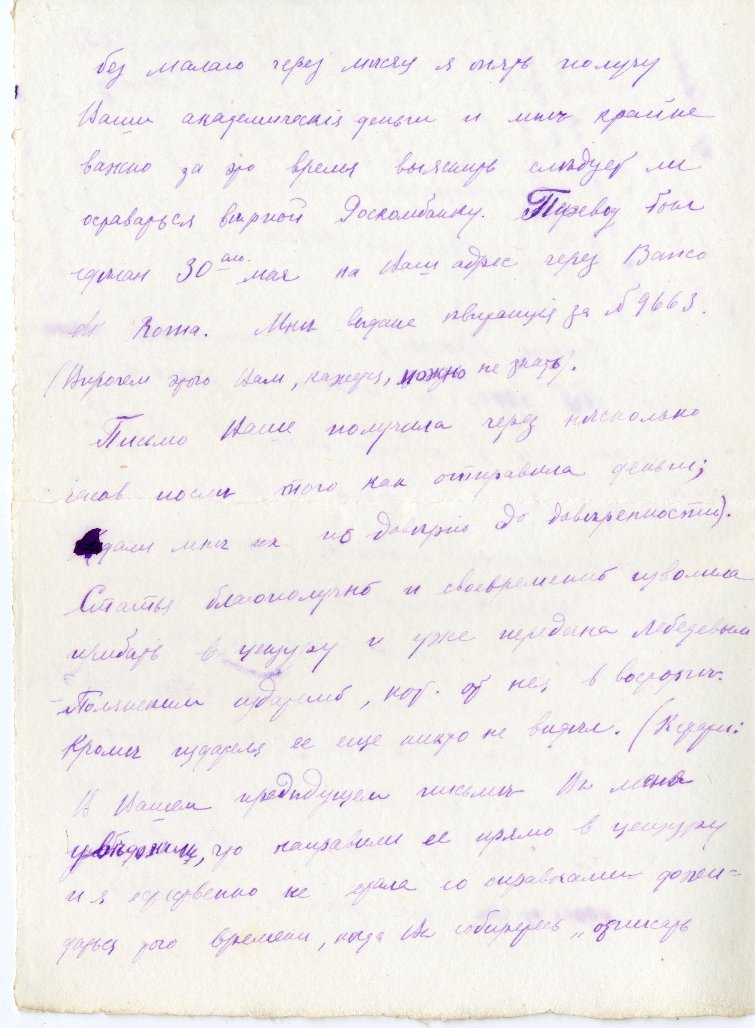 без малаго через мѣсяц я опять получу
Ваши академическія деньги и мнѣ крайне
важно за это время выяснить слѣдует ли
оставаться вѣрной Роскомбанку. Перевод был
сдѣлан 30ого мая на Ваш адрес через Banco
di Roma. Мнѣ выдана квитанція за № 9663.
(Впрочем этого Вам, кажется, можно не знать).
Письмо Ваше получила через нѣсколько
часов послѣ того как отправила деньги;
дали мнѣ их по довѣрію до довѣренности).
Статья благополучно и своевременно изволила
прибыть в цензуру и уже передана Лебедевым
-Полянским издателю, кот. от нея в восторгѣ.
Кромѣ издателя ее еще никто не видѣл. (Кстати:
В Вашем предыдущем письмѣ Вы меня
увѣдомили, что направили ее прямо в цензуру
и я естественно не стала со справками дожи=
даться того времени, когда Вы соберетесь „отписать